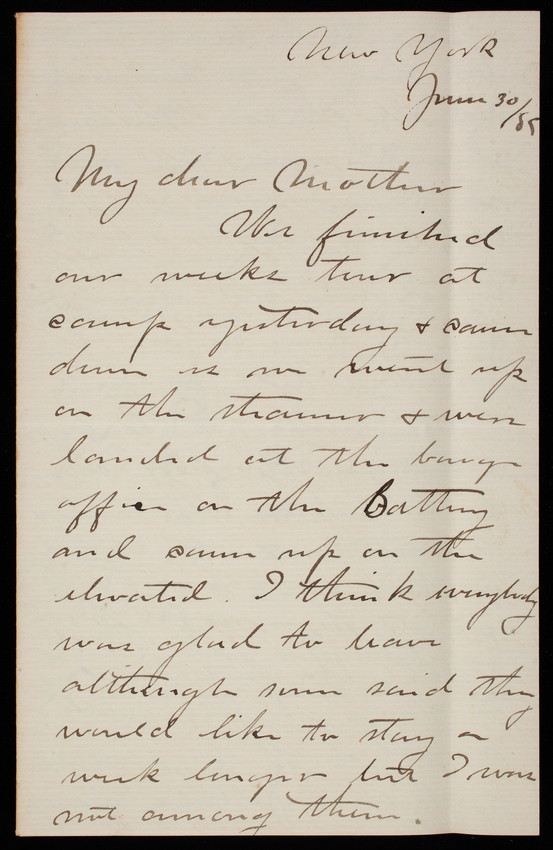 New York
June 30/85
My dear Mother
We finished
our weeks tour at
camp yesterday & came
down as we went up
on the steamer & were
landed at the barge
office on the Battery
and came up on the
elevated. I think everybody
was glad to leave
although some said they
would like to stay a
week longer but I was
not among them.